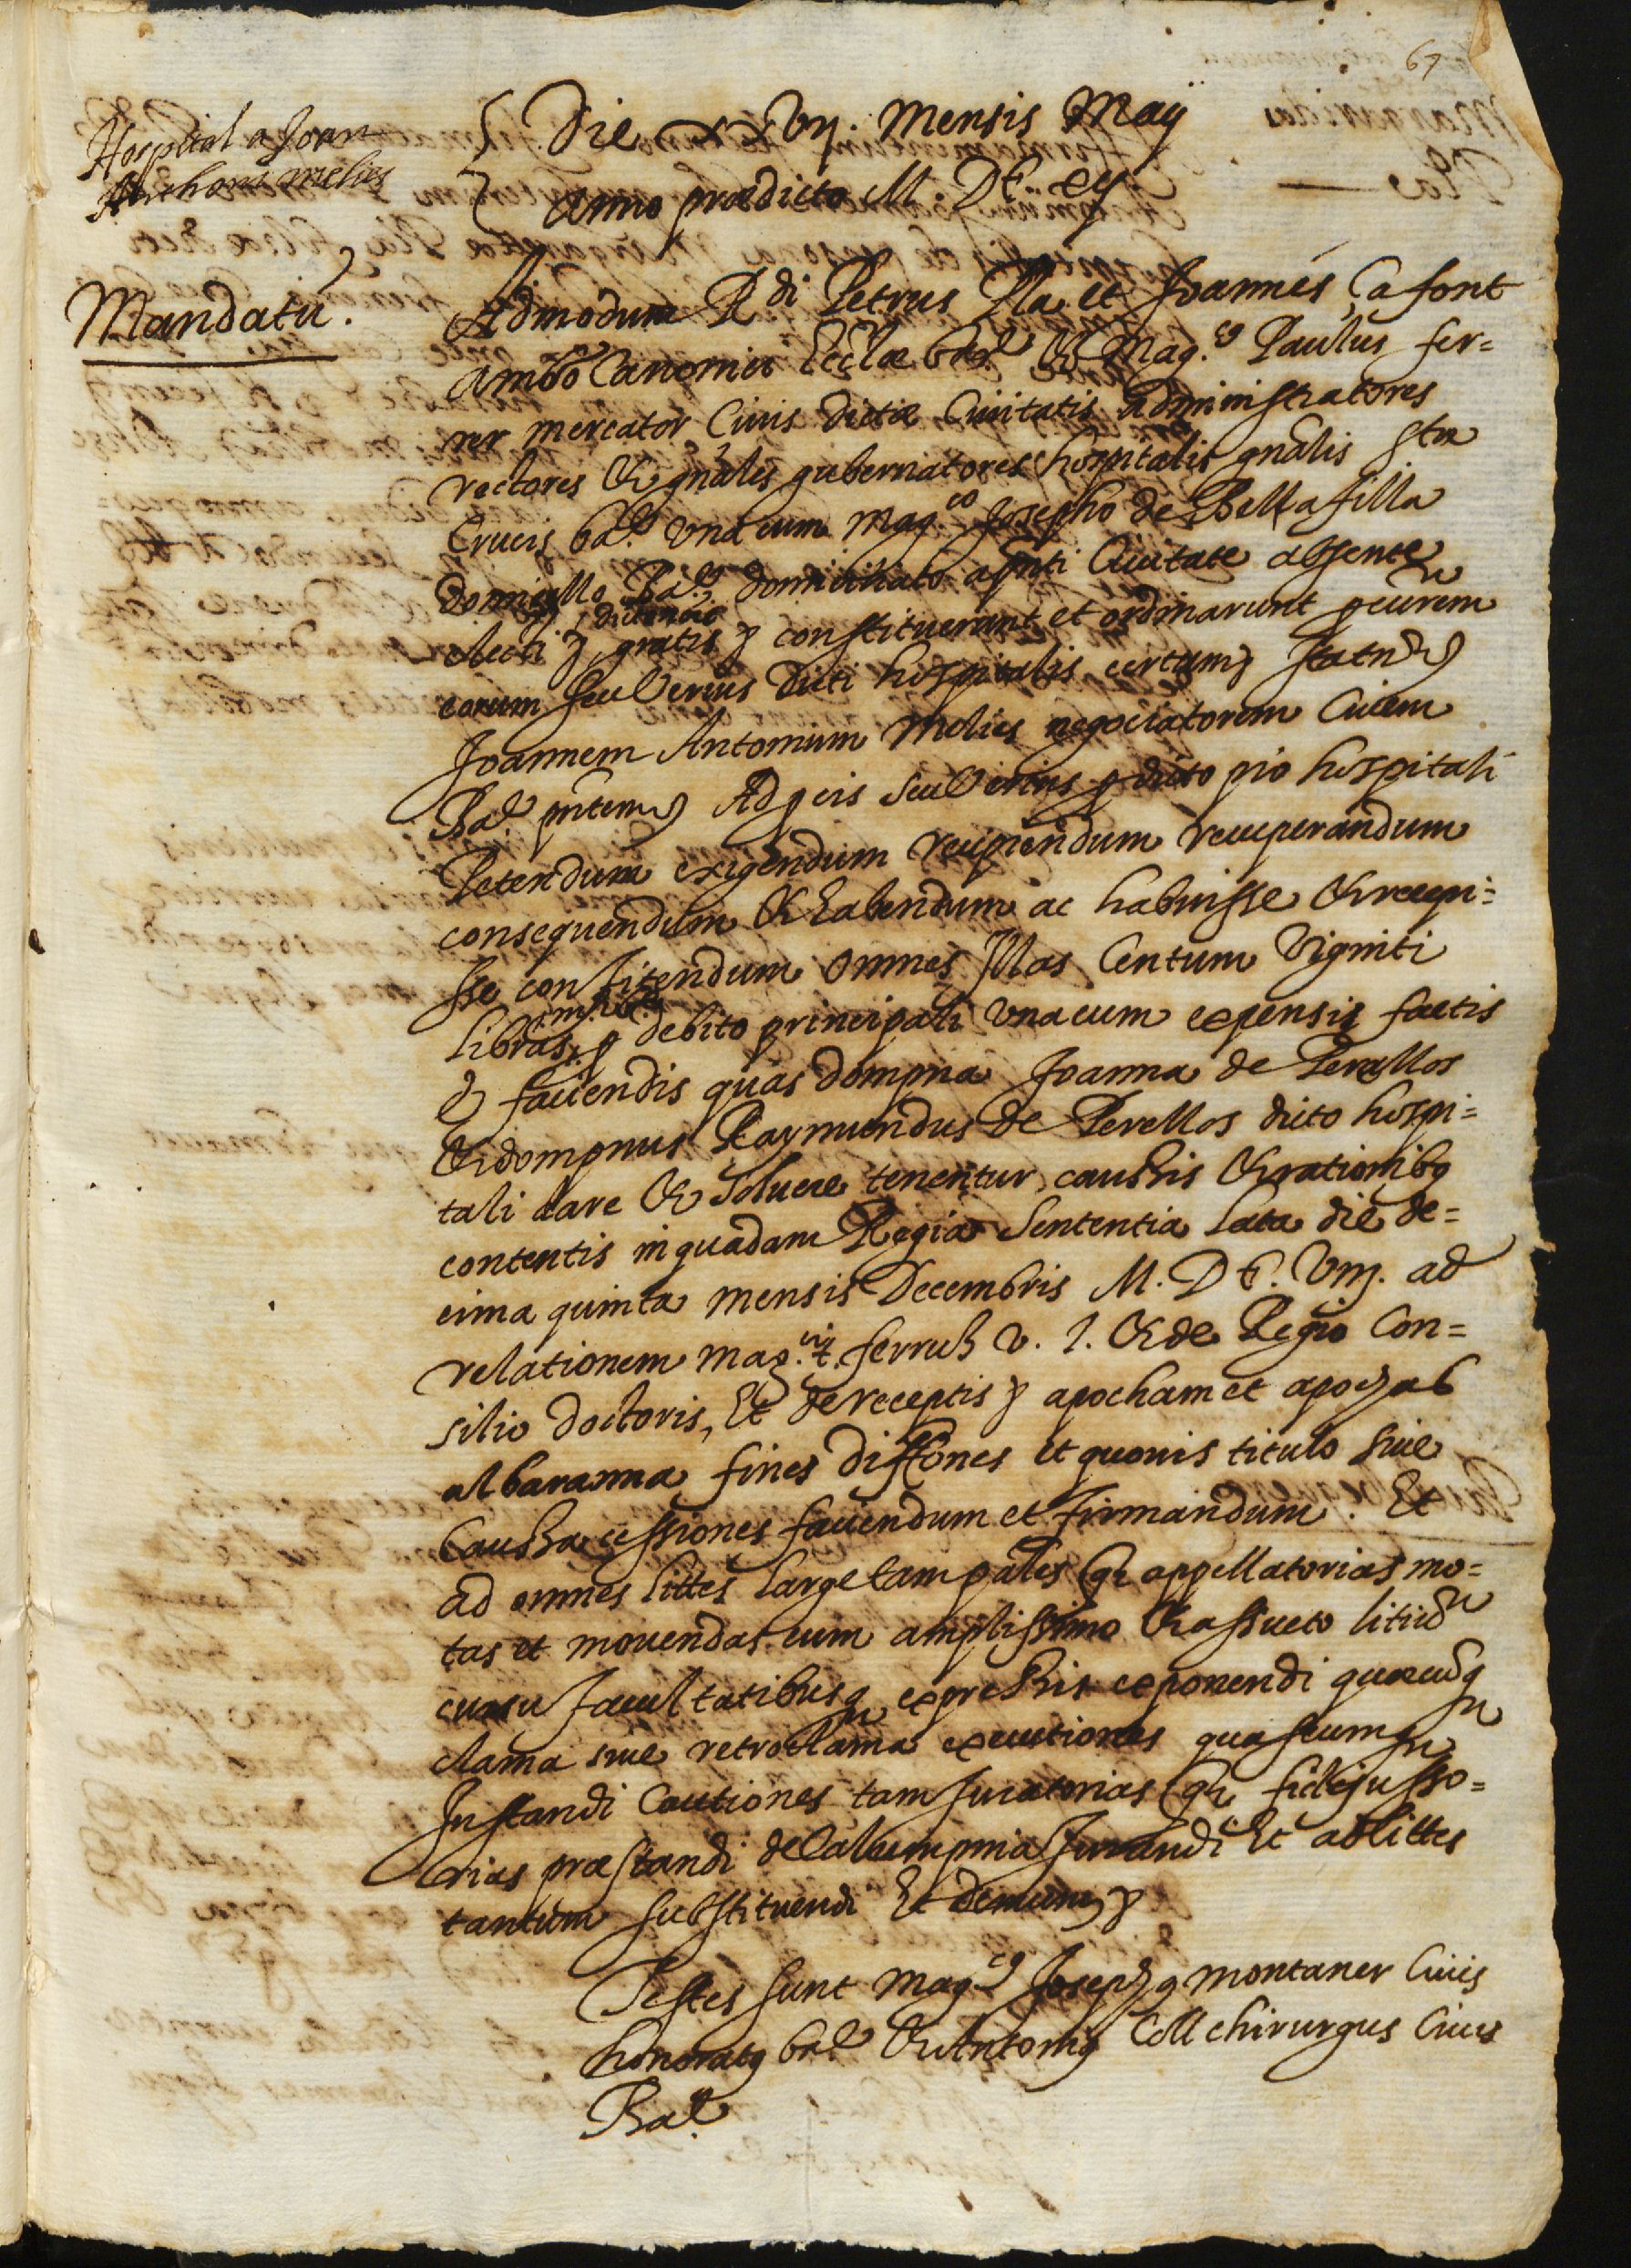 67
Hospital a Joan
Anthoni melies
Die xxvij. Mensis Maij
Anno prædicto M. DC. xij
Mandatũ.
Admodum R.di Petrus Pla et Joannes Çafont
ambo Canonici Eccłæ bar. et Mag.cus Paulus fer=
rer mercator Civis dictæ Civitatis administratores
rectores et gñales gubernatores hospitalis gñalis stæ
Crucis bar. una cum Mag.co Josepho de Bellafilla
domicello Bar. domiciliato a pñti Civitate absente
electi gratis constituerunt et ordinarunt pcurem
eorum seu verius dicti hospitalis certum
Joannem Antonium Melies negociatorem Civem
Bar. pñtem Ad p eis seu verius p dicto pio hospitali
Petendum exigendum recipiendum recuperandum
consequendum et habendum ac habuisse et recepi=
sse confitendum omnes illas Centum viginti
libras p debito principali una cum expensis factis
et faciendis quas dompna Joanna de Perellos
et dompnus Raymundus de Perellos dicto hospi=
tali dare et solvere tenentur caussis et rationibq
contentis in quadam Regia Sententia lata die de=
cima quinta mensis Decembris M. DC. viij. ad
relationem mag.ci ferruss v. J. et de Regio Con=
silio doctoris, Et de receptis apocham et apocas
albarana fines diffones et quovis titulo sive
Caussa cessiones faciendum et firmandum. Et
ad omnes littes large tam pales q appellatorias mo=
tas et movendas cum amplissimo et assueto litiũ
cursu facultatibusq expressis exponendi quæcũq
clama sive retroclama executiones quascumq
Instandi Cautiones tam Juratorias q fidejusso=
rias præstandi de Calumpnia Jurandi Et ad littes
tantum substituendi Et demum
Testes sunt Mag.cus Josephq montaner Civis
honoratq bar. et Antoniq Coll chirurgus Civis
Bar.